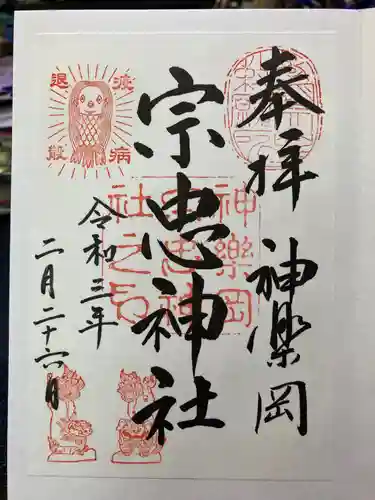 奉拝 神樂岡
宗忠神社
令和三年
二月二十六日
疫病
退散
神樂岡
宗忠神
社之印